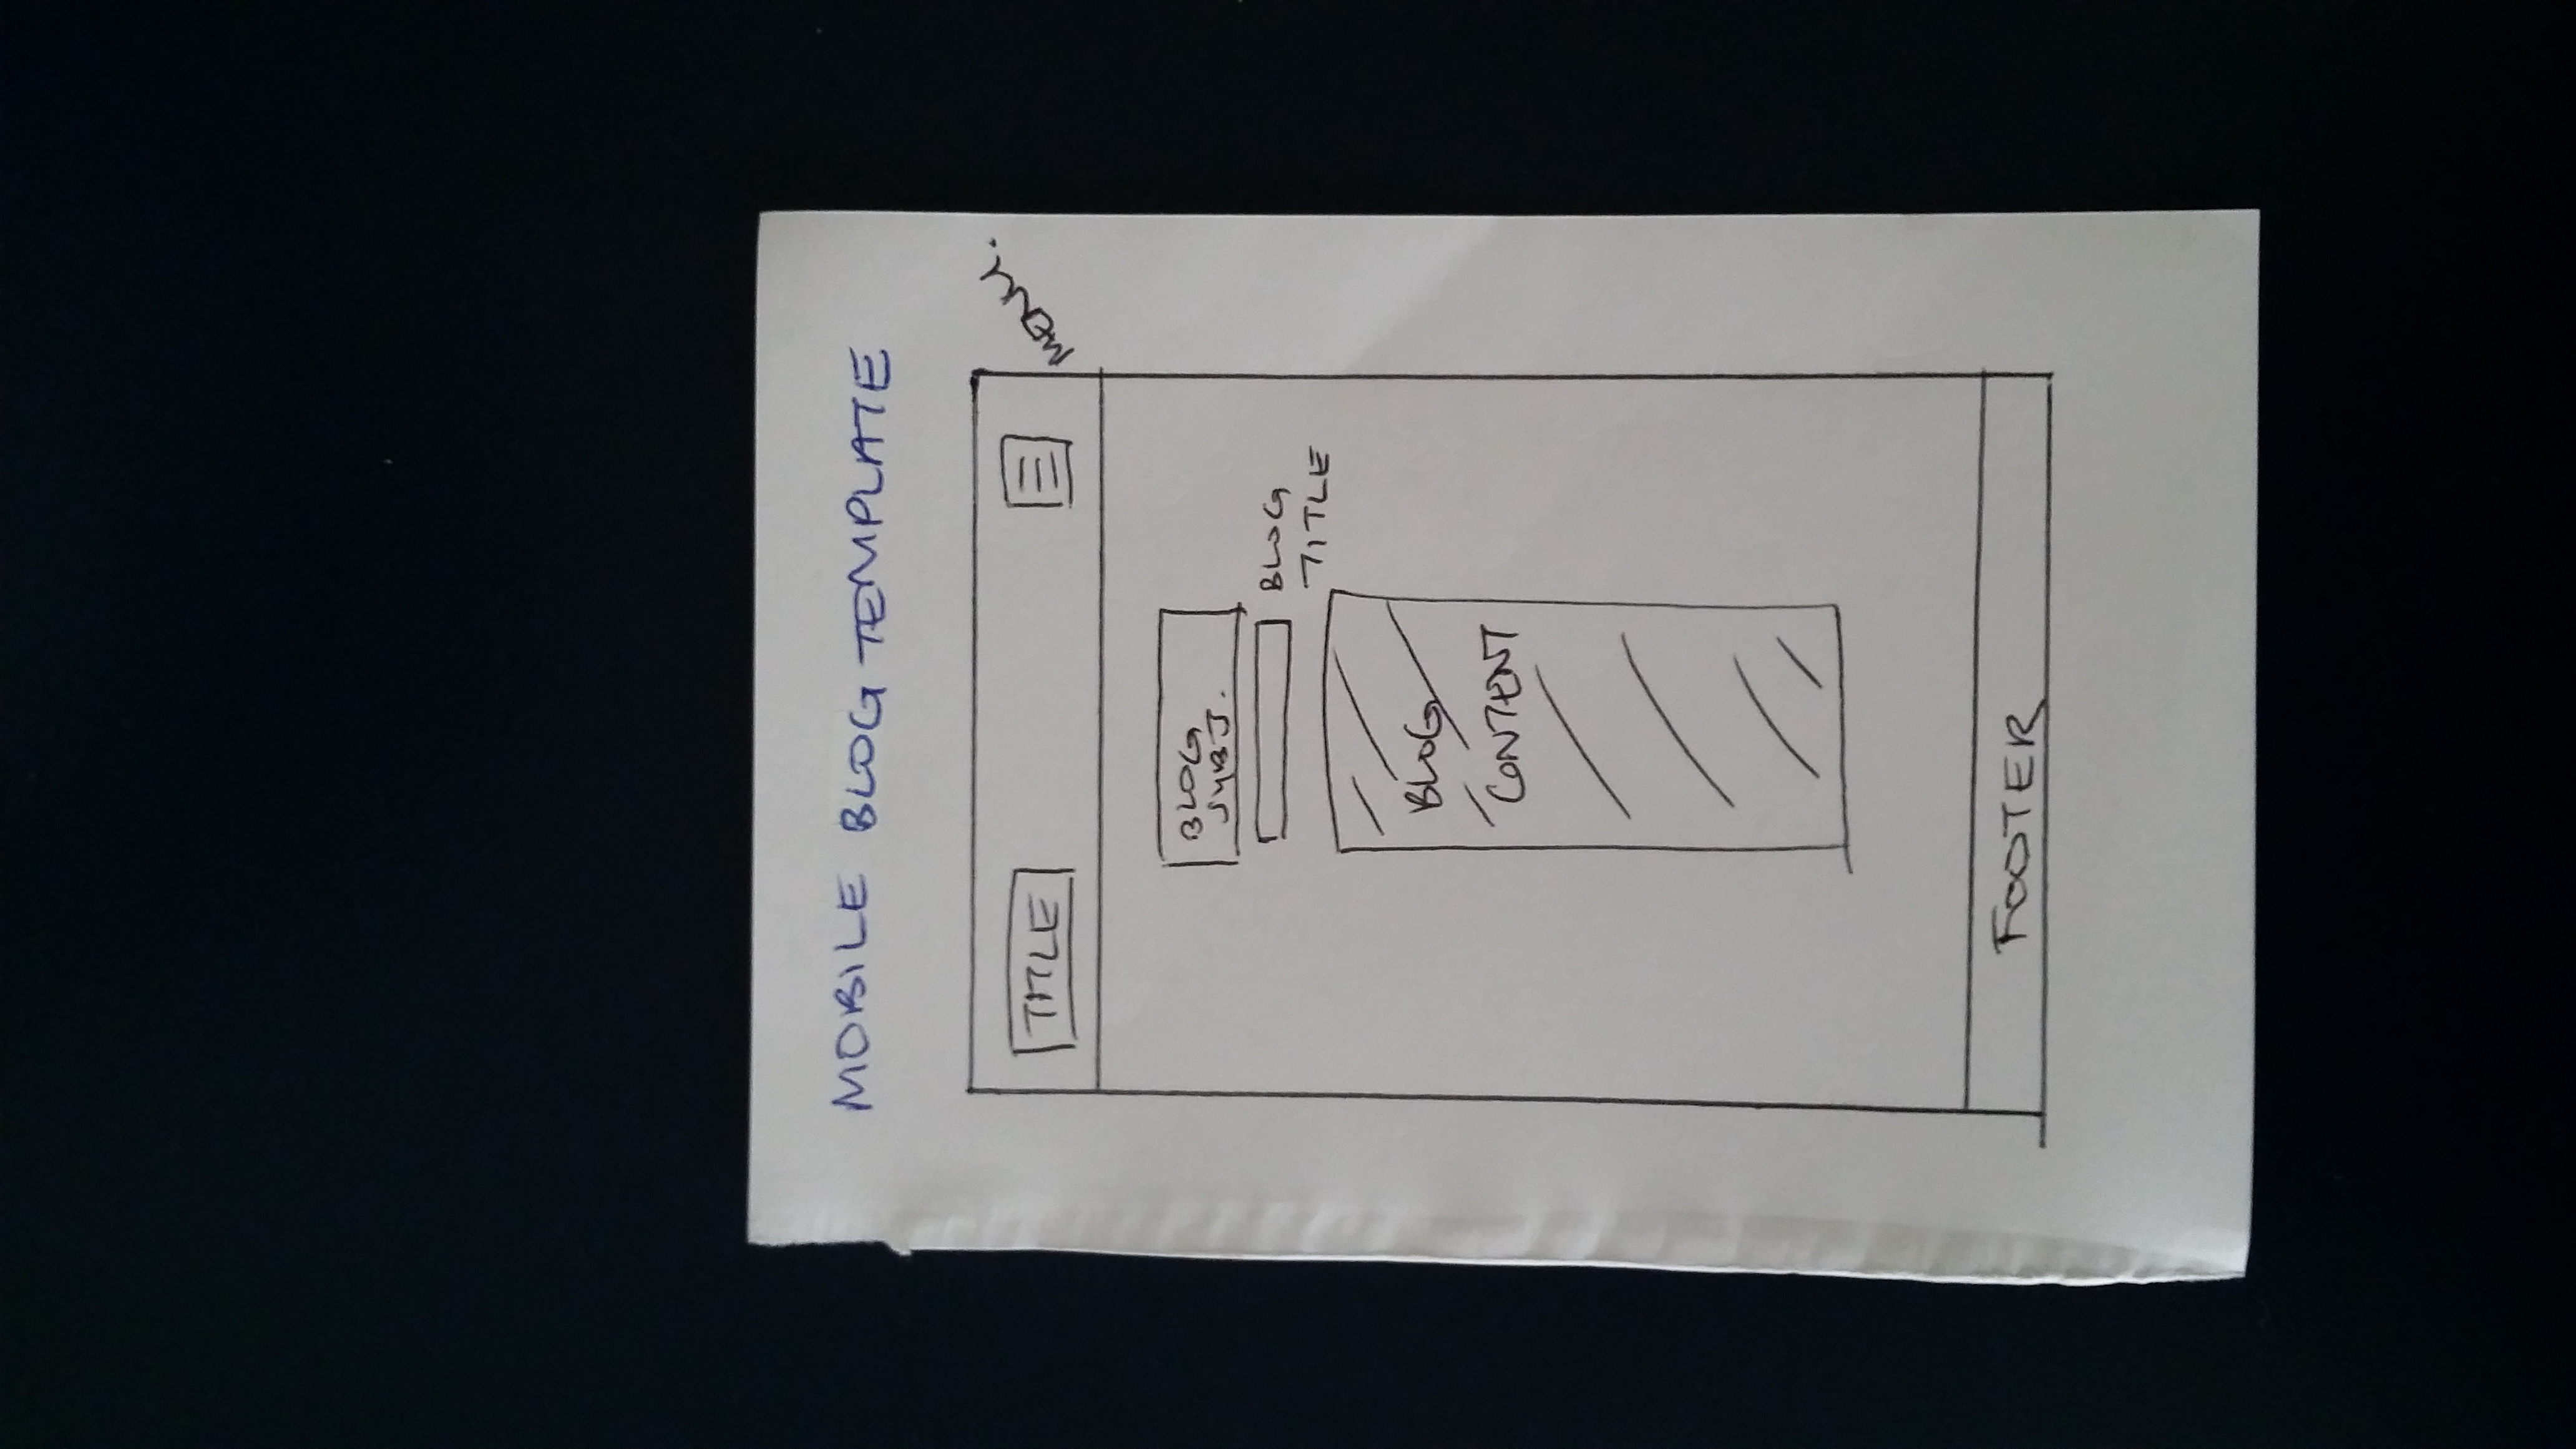 MOBILE BLOG TEMPLATE
TITLE
MENU.
BLOG
SUBJ.
BLOG
TITLE
BLOG
CONTENT
FOOTER